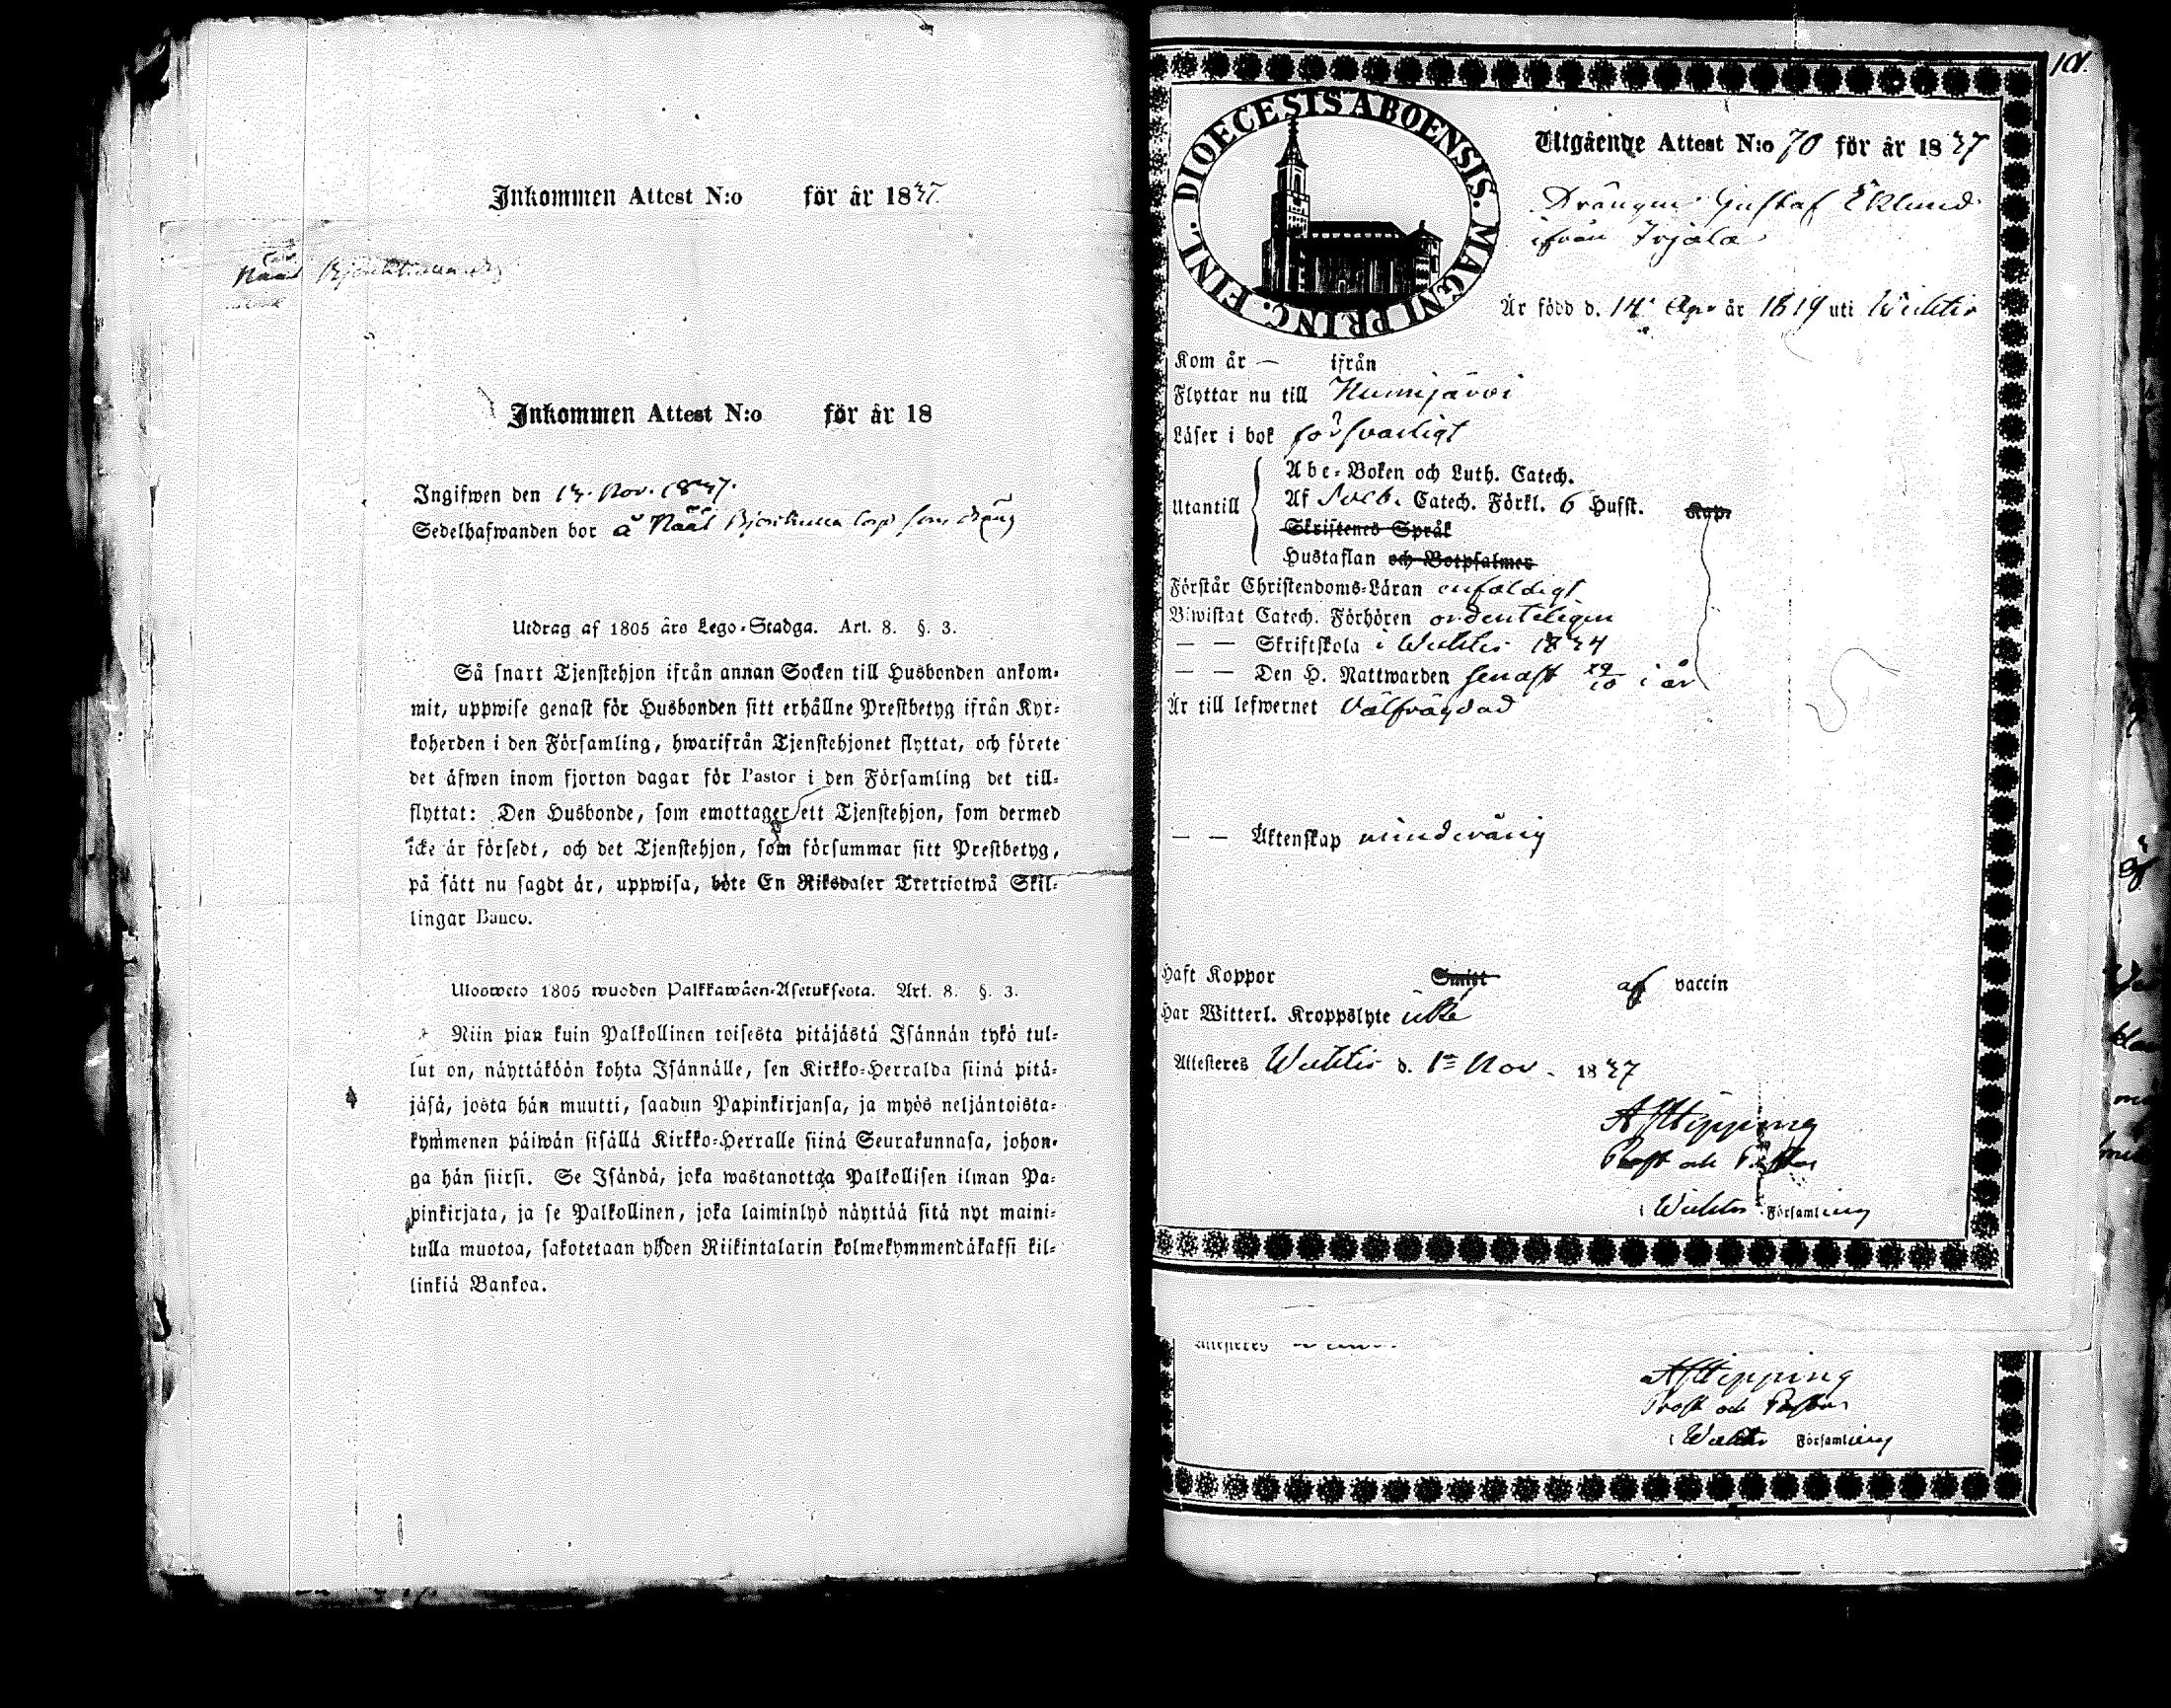 Inkommen Attest N:o för år 1837.
Inkommen Attest N:o för år 18
Ingifwen den 13. Nov. 1837.
Sedelhafwanden bor å som dräng
Utdrag af 1805 års Lego-Stadga. Art. 8. §. 3.
Så snart Tjenstehjon ifrån annan Socken till Husbonden ankom-
mit, uppwise genast för Husbonden sitt erhållne Prestbetyg ifrån Kyr-
koherden i den Församling, hwarifrån Tjenstehjonet flyttat, och förete
det äfwen inom fjorton dagar för Pastor i den Församling det till-
flyttat: Den Husbonde, som emottager ett Tjenstehjon, som dermed
icke är försedt, och det Tjenstehjon, som försummar sitt Prestbetyg,
på sätt nu sagdt är, uppwisa, böte En Riksdaler Trettiotwå Skil-
lingar Banco.
Ulosweto 1805 wuoden Palkkawäen-Asetuksesta. Art. 8. §. 3.
Niin pian kuin Palkollinen toisesta pitäjästä Isännän tykö tul-
lut on, näyttäköön kohta Isännälle, sen Kirkko-Herralda siinä pitä-
jäsä, josta hän muutti, saadun Papinkirjansa, ja myös neljäntoista-
kymmenen päiwän sisällä Kirkko-Herralle siinä Seurakunnasa, johon-
ga hän siirsi. Se Isändä, joka wastanottaa Palkollisen ilman Pa-
pinkirjata, ja se Palkollinen, joka laiminlyö näyttää sitä nyt maini-
tulla muotoa, sakotetaan yhden Riikintalarin kolmekymmendäkaksi kil-
linkiä Bankoa.
DIOECESIS ABOENSIS. MAGNI PRINC. FINL.
Utgående Attest N:o 70 för år 1837
Drängen Gustaf Eklund
ifrån Irjala
Är född d. 14 Apr år 1819 uti Wichtis
Kom år — ifrån
Flyttar nu till Nummijärvi
Läser i bok försvarligt
Utantill
Abc-Boken och Luth. Catech.
Af Sveb. Catech. Förkl. 6 Hufst. Kap.
Skriftenes Språk
Hustaflan och Botpsalmer
Förstår Christendoms-Läran enfaldigt
Biwistat Catech. Förhören ordenteligen
— — Skriftskola i Wichtis 1834
— — Den H. Nattwarden senast 29/10 i år
Är till lefwernet Välfrägdad
— — Äktenskap minderårig
Haft Koppor Smitt af vaccin
Har Witterl. Kroppslyte icke
Attesteres Wichtis d. 1 Nov. 1837
A F Hipping
Prost och Pastor
i Wichtis Församling
Attesteres
A F Hipping
Prost och Pastor
i Wichtis Församling